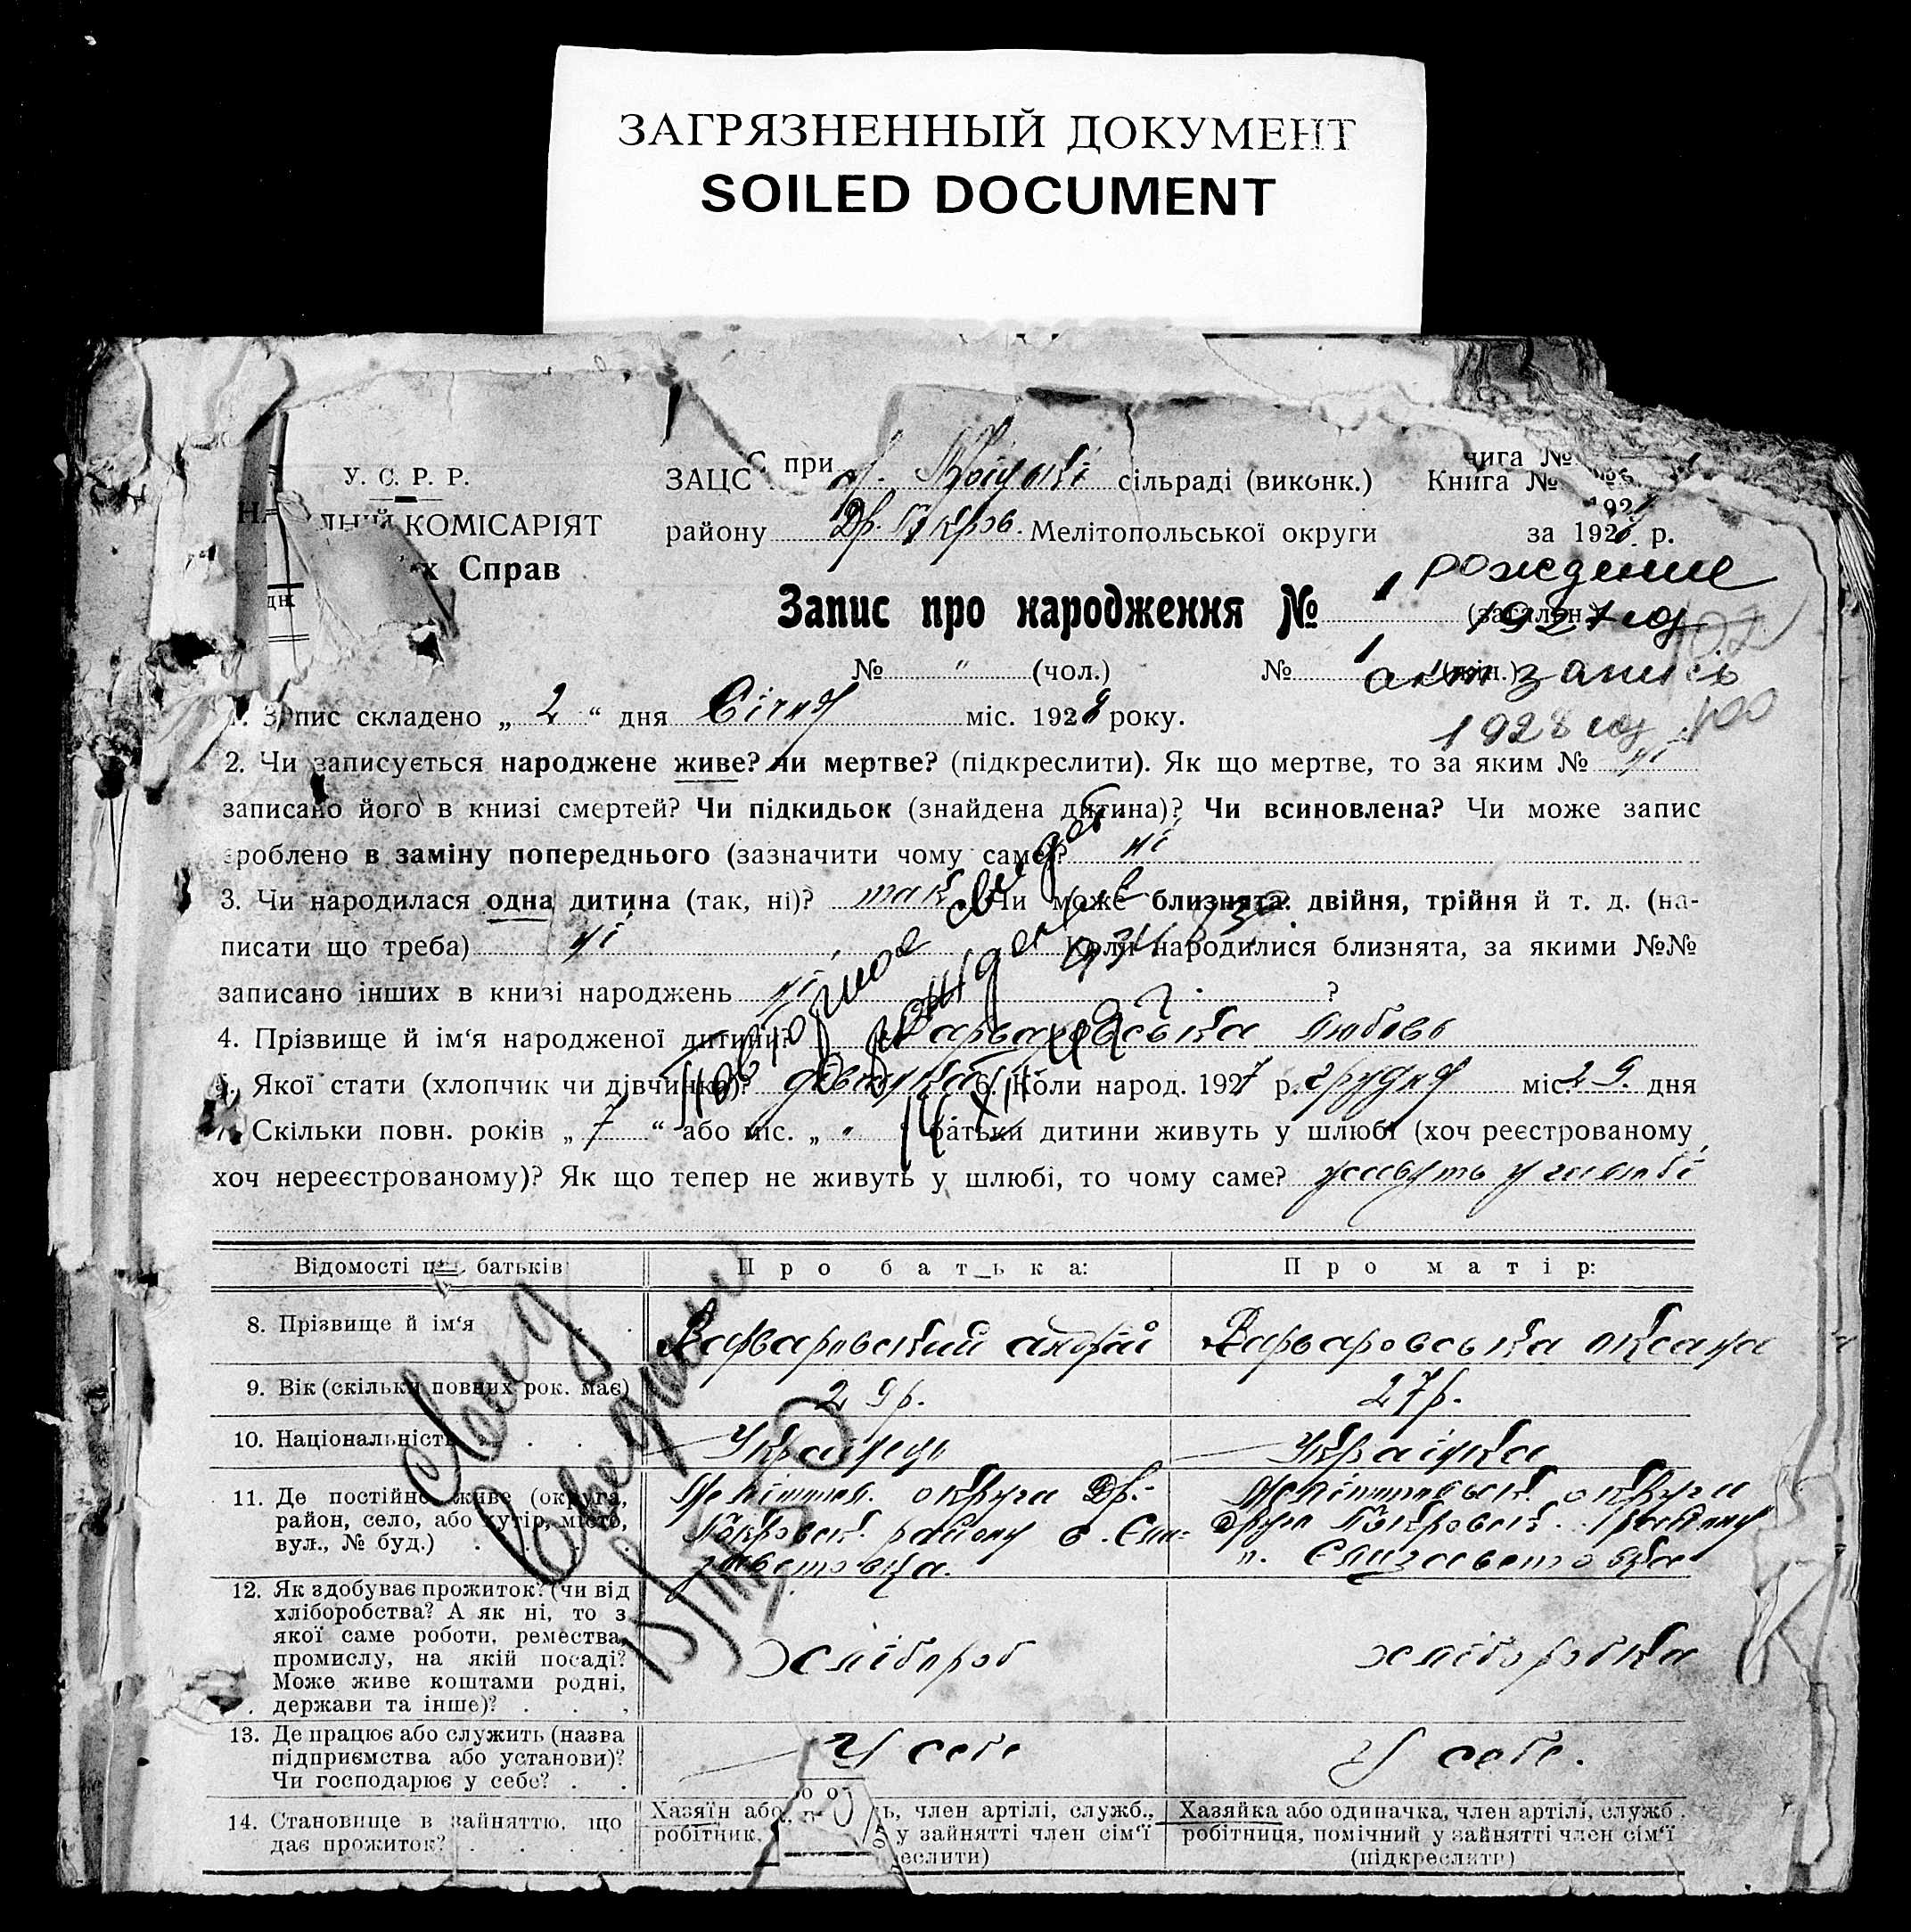 ЗАГРЯЗНЕННЫЙ ДОКУМЕНТ
SOILED DOCUMENT
У. С. Р. Р.
КОМІСАРІЯТ
Справ
ЗАЦС при сільраді (виконк.) Книга №
району Др. Покров. Мелітопольської округи за 192 р.
рождение
Запис про народження № 1
1927 год
№ " (чол.) № 1
акт запись
1. Запис складено „ 2 “ дня Січня міс. 1928 року.
1928 год
2. Чи записується народжене живе? чи мертве? (підкреслити). Як що мертве, то за яким № ні
записано його в книзі смертей? Чи підкидьок (знайдена дитина)? Чи всиновлена? Чи може запис
зроблено в заміну попереднього (зазначити чому саме)? ні
3. Чи народилася одна дитина (так, ні)? так Чи може близнята: двійня, трійня й т. д. (на-
писати що треба) ні Коли народилися близнята, за якими №№
записано інших в книзі народжень ні ?
4. Прізвище й ім‘я народженої дитини? Варваровська Любовь
5. Якої стати (хлопчик чи дівчинка)? дівчинка 6. Коли народ. 1927 р. грудня міс. 29. дня
7. Скільки повн. років „ 7 “ або міс. „ " “ батьки дитини живуть у шлюбі (хоч реєстрованому
хоч нереєстрованому)? Як що тепер не живуть у шлюбі, то чому саме? живуть у шлюбі
Повторное свидет.
Відомості про батьків Про батька: Про матір:
8. Прізвище й ім‘я Варваровський андрій Варваровська оксана
9. Вік (скільки повних рок. має) 29р. 27р.
10. Національність Українець Українка
11. Де постійно живе (округа, район, село, або хутір, місто, вул., № буд.)
Мелітоп. округа Др.-
Покровськ. району с. Єли-
заветовка.
округа
Друго Покровськ. району
Єлизаветовка
12. Як здобуває прожиток? (чи від
хліборобства? А як ні, то з
якої саме роботи, ремества,
промислу, на якій посаді?
Може живе коштами родні,
держави та інше)?
Хлібороб хліборобка
13. Де працює або служить (назва
підприємства або установи)?
Чи господарює у себе?
У себе У себе.
14. Становище в зайняттю, що
дає прожиток?
Хазяїн або член артілі, служб.,
робітник, у зайнятті член сім‘ї
Хазяйка або одиначка, член артілі, служб.
робітниця, помічний у зайнятті член сім‘ї
(підкреслити)